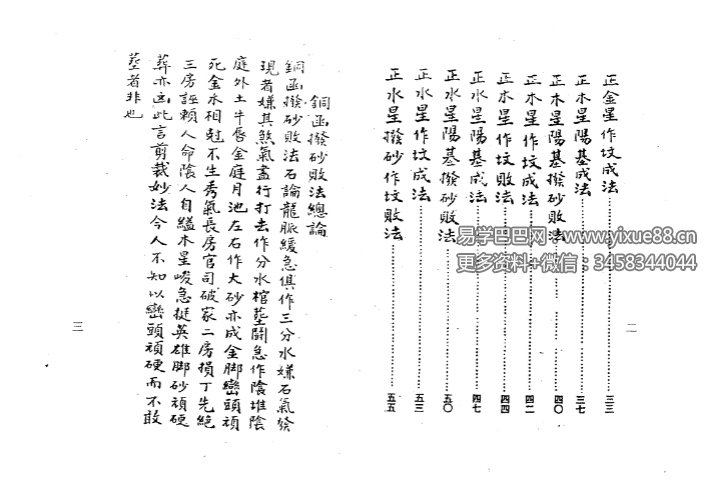 正金星作坟成法……三三
正木星陽基成法……三七
正木星陽基撥砂敗法……四〇
正木星作坟成法……四二
正木星作坟敗法……四四
正水星陽基成法……四七
正水星陽基撥砂敗法……五〇
正水星作坟成法……五三
正水星撥砂作坟敗法……五五
二
銅函撥砂敗法總論
銅函撥砂敗法石論龍脈緩急俱作三分水嫌石氣發
現者嫌其煞氣盡行打去作分水棺塟鬪急作陰堆陰
庭外土牛唇金庭月池左右作大砂亦成金脚巒頭頑
死金木相尅不生秀氣長房官司破家二房損丁先絕
三房誣賴人命陰人自縊木星峻急挺英雄脚砂頑硬
葬亦凶此言剪裁妙法今人不知以巒頭頑硬而不敢
塟者非也
三
易学巴巴网：www.yixue88.cn
更多资料+微信：3458344044